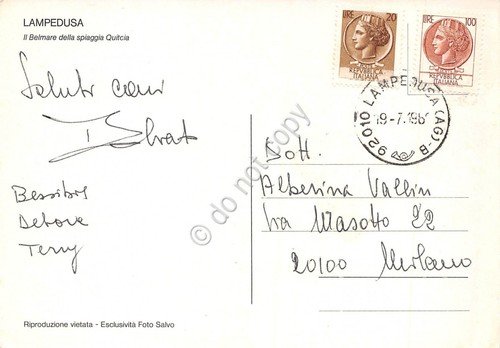 LAMPEDUSA
Il Belmare della spiaggia Quitcia
Saluti cari
Debora
Terry
LIRE 20
REPVBBLICA
ITALIANA
LIRE 100
REPVBBLICA
ITALIANA
92010 LAMPEDUSA (AG)-B
9-7.198
Dott.
Alberina Vallin
Via Masotto 22
20100 Milano
© do not copy
Riproduzione vietata - Esclusività Foto Salvo